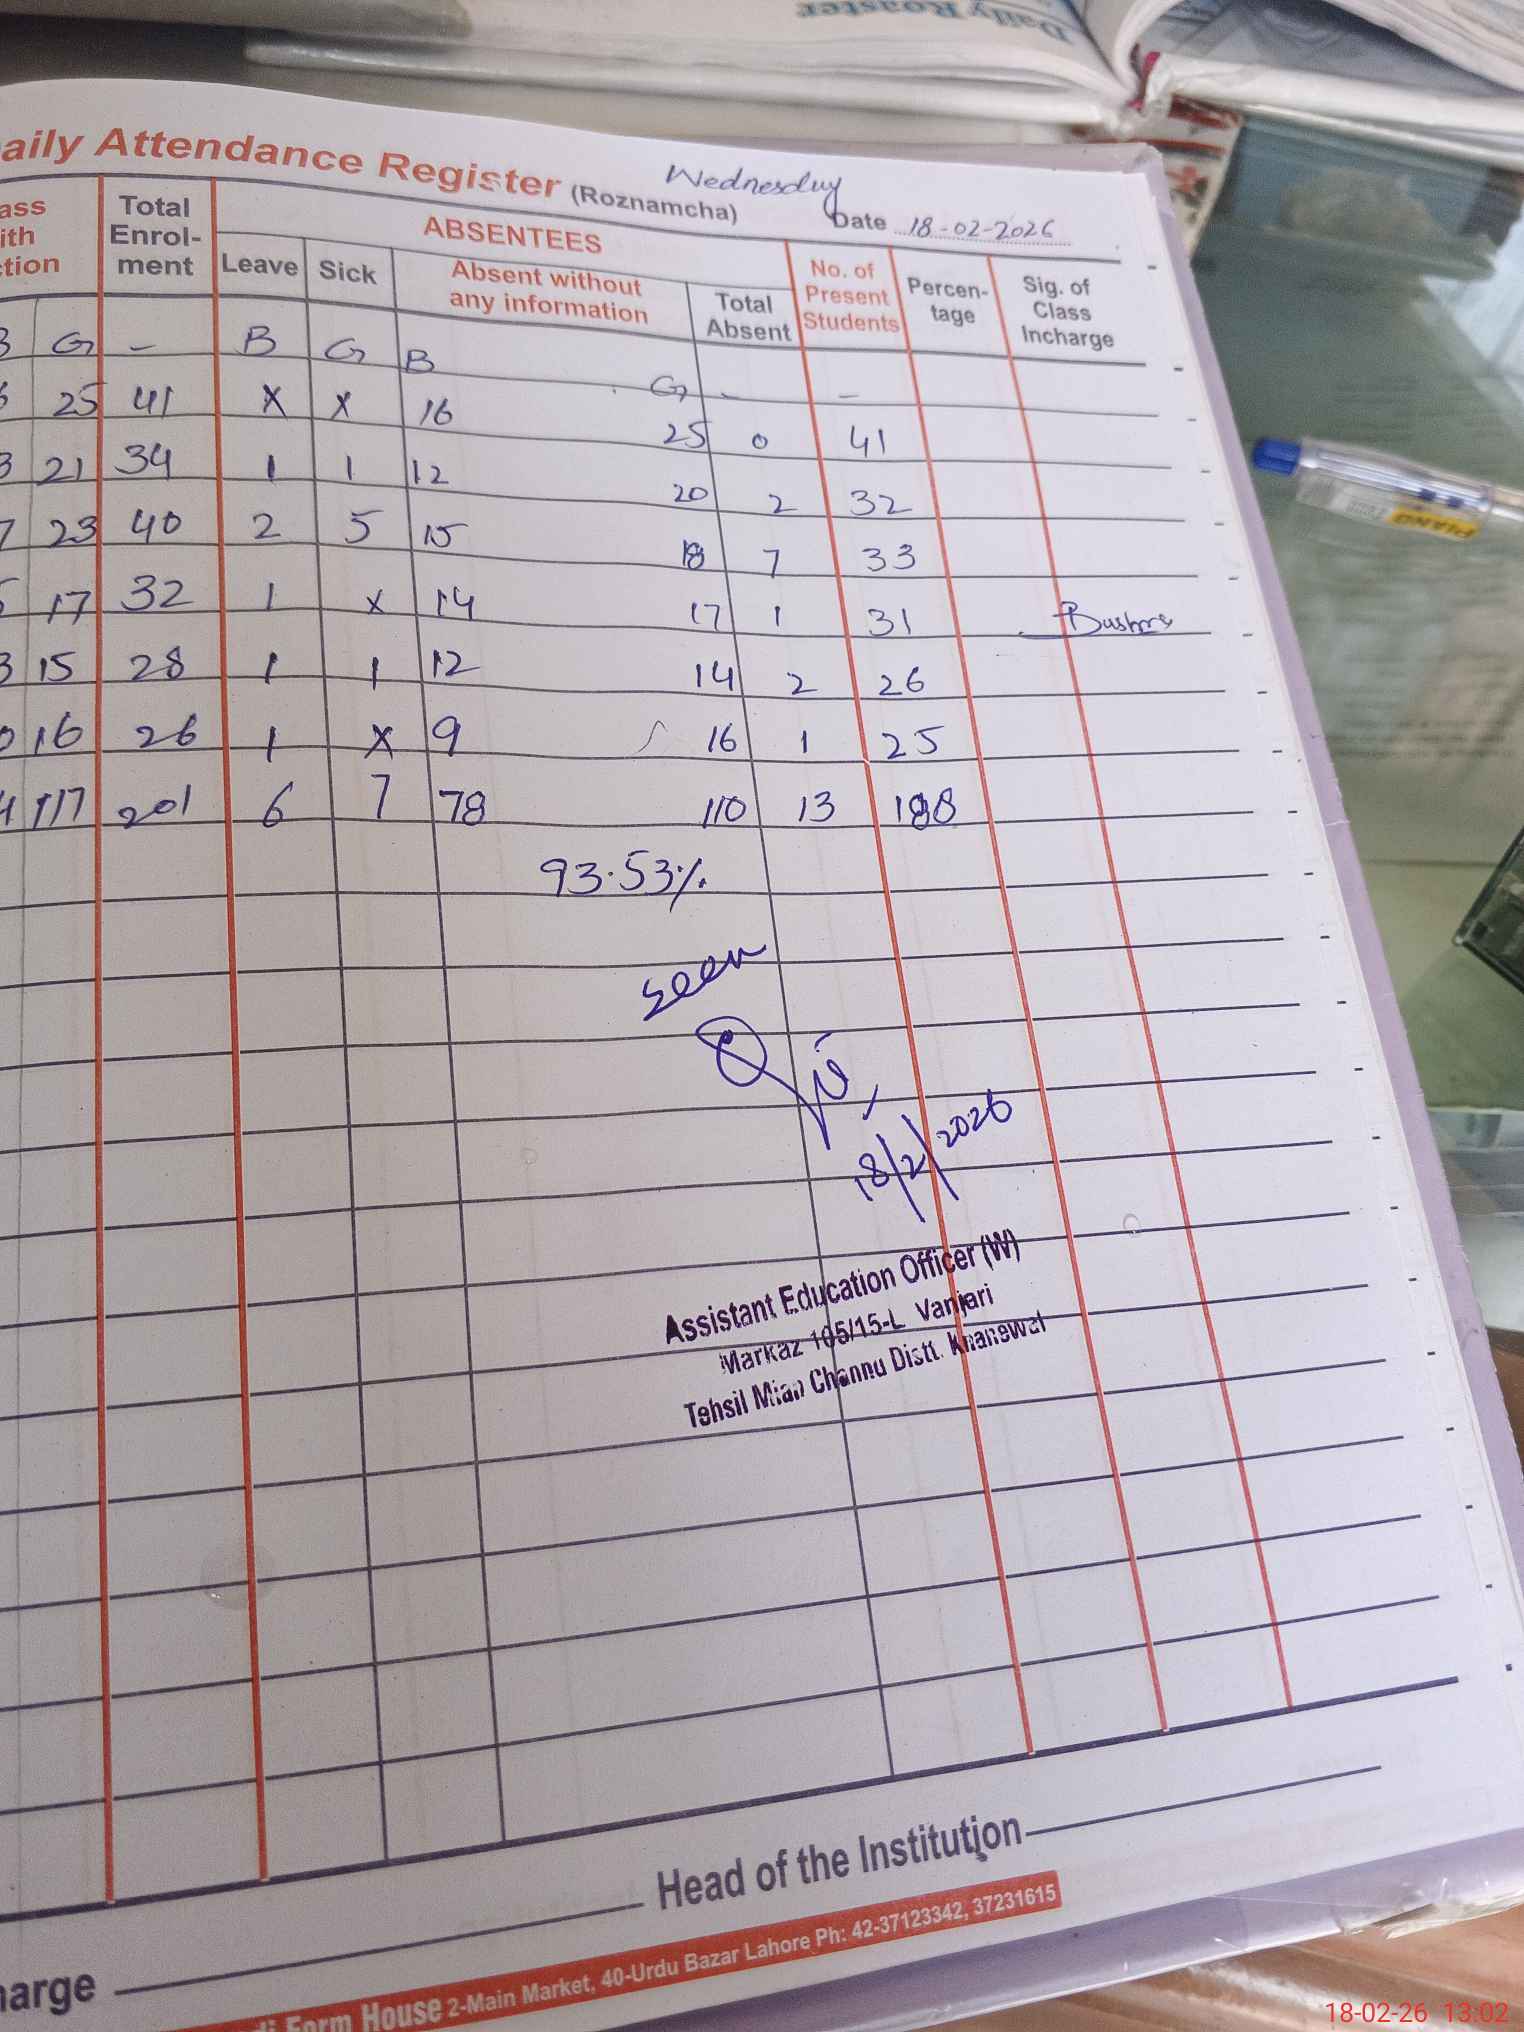 Daily Roaster
aily Attendance Register (Roznamcha)
Wednesday
Date 18-02-2026
ass
ith
tion
Total
Enrol-
ment
ABSENTEES
Leave
Sick
Absent without
any information
Total
Absent
No. of
Present
Students
Percen-
tage
Sig. of
Class
Incharge
B G - B G B G - -
25 41 x x 16 25 0 41
3 21 34 1 1 12 20 2 32
7 23 40 2 5 15 18 7 33
17 32 1 x 14 17 1 31 Bushra
3 15 28 1 1 12 14 2 26
0 16 26 1 x 9 16 1 25
4 117 201 6 7 78 110 13 188
93.53%
Seen
18/2/2026
Assistant Education Officer (W)
Markaz 105/15-L Vanjari
Tehsil Mian Channu Distt. Khanewal
Head of the Institution
harge
Form House 2-Main Market, 40-Urdu Bazar Lahore Ph: 42-37123342, 37231615
PIANO
18-02-26 13:02